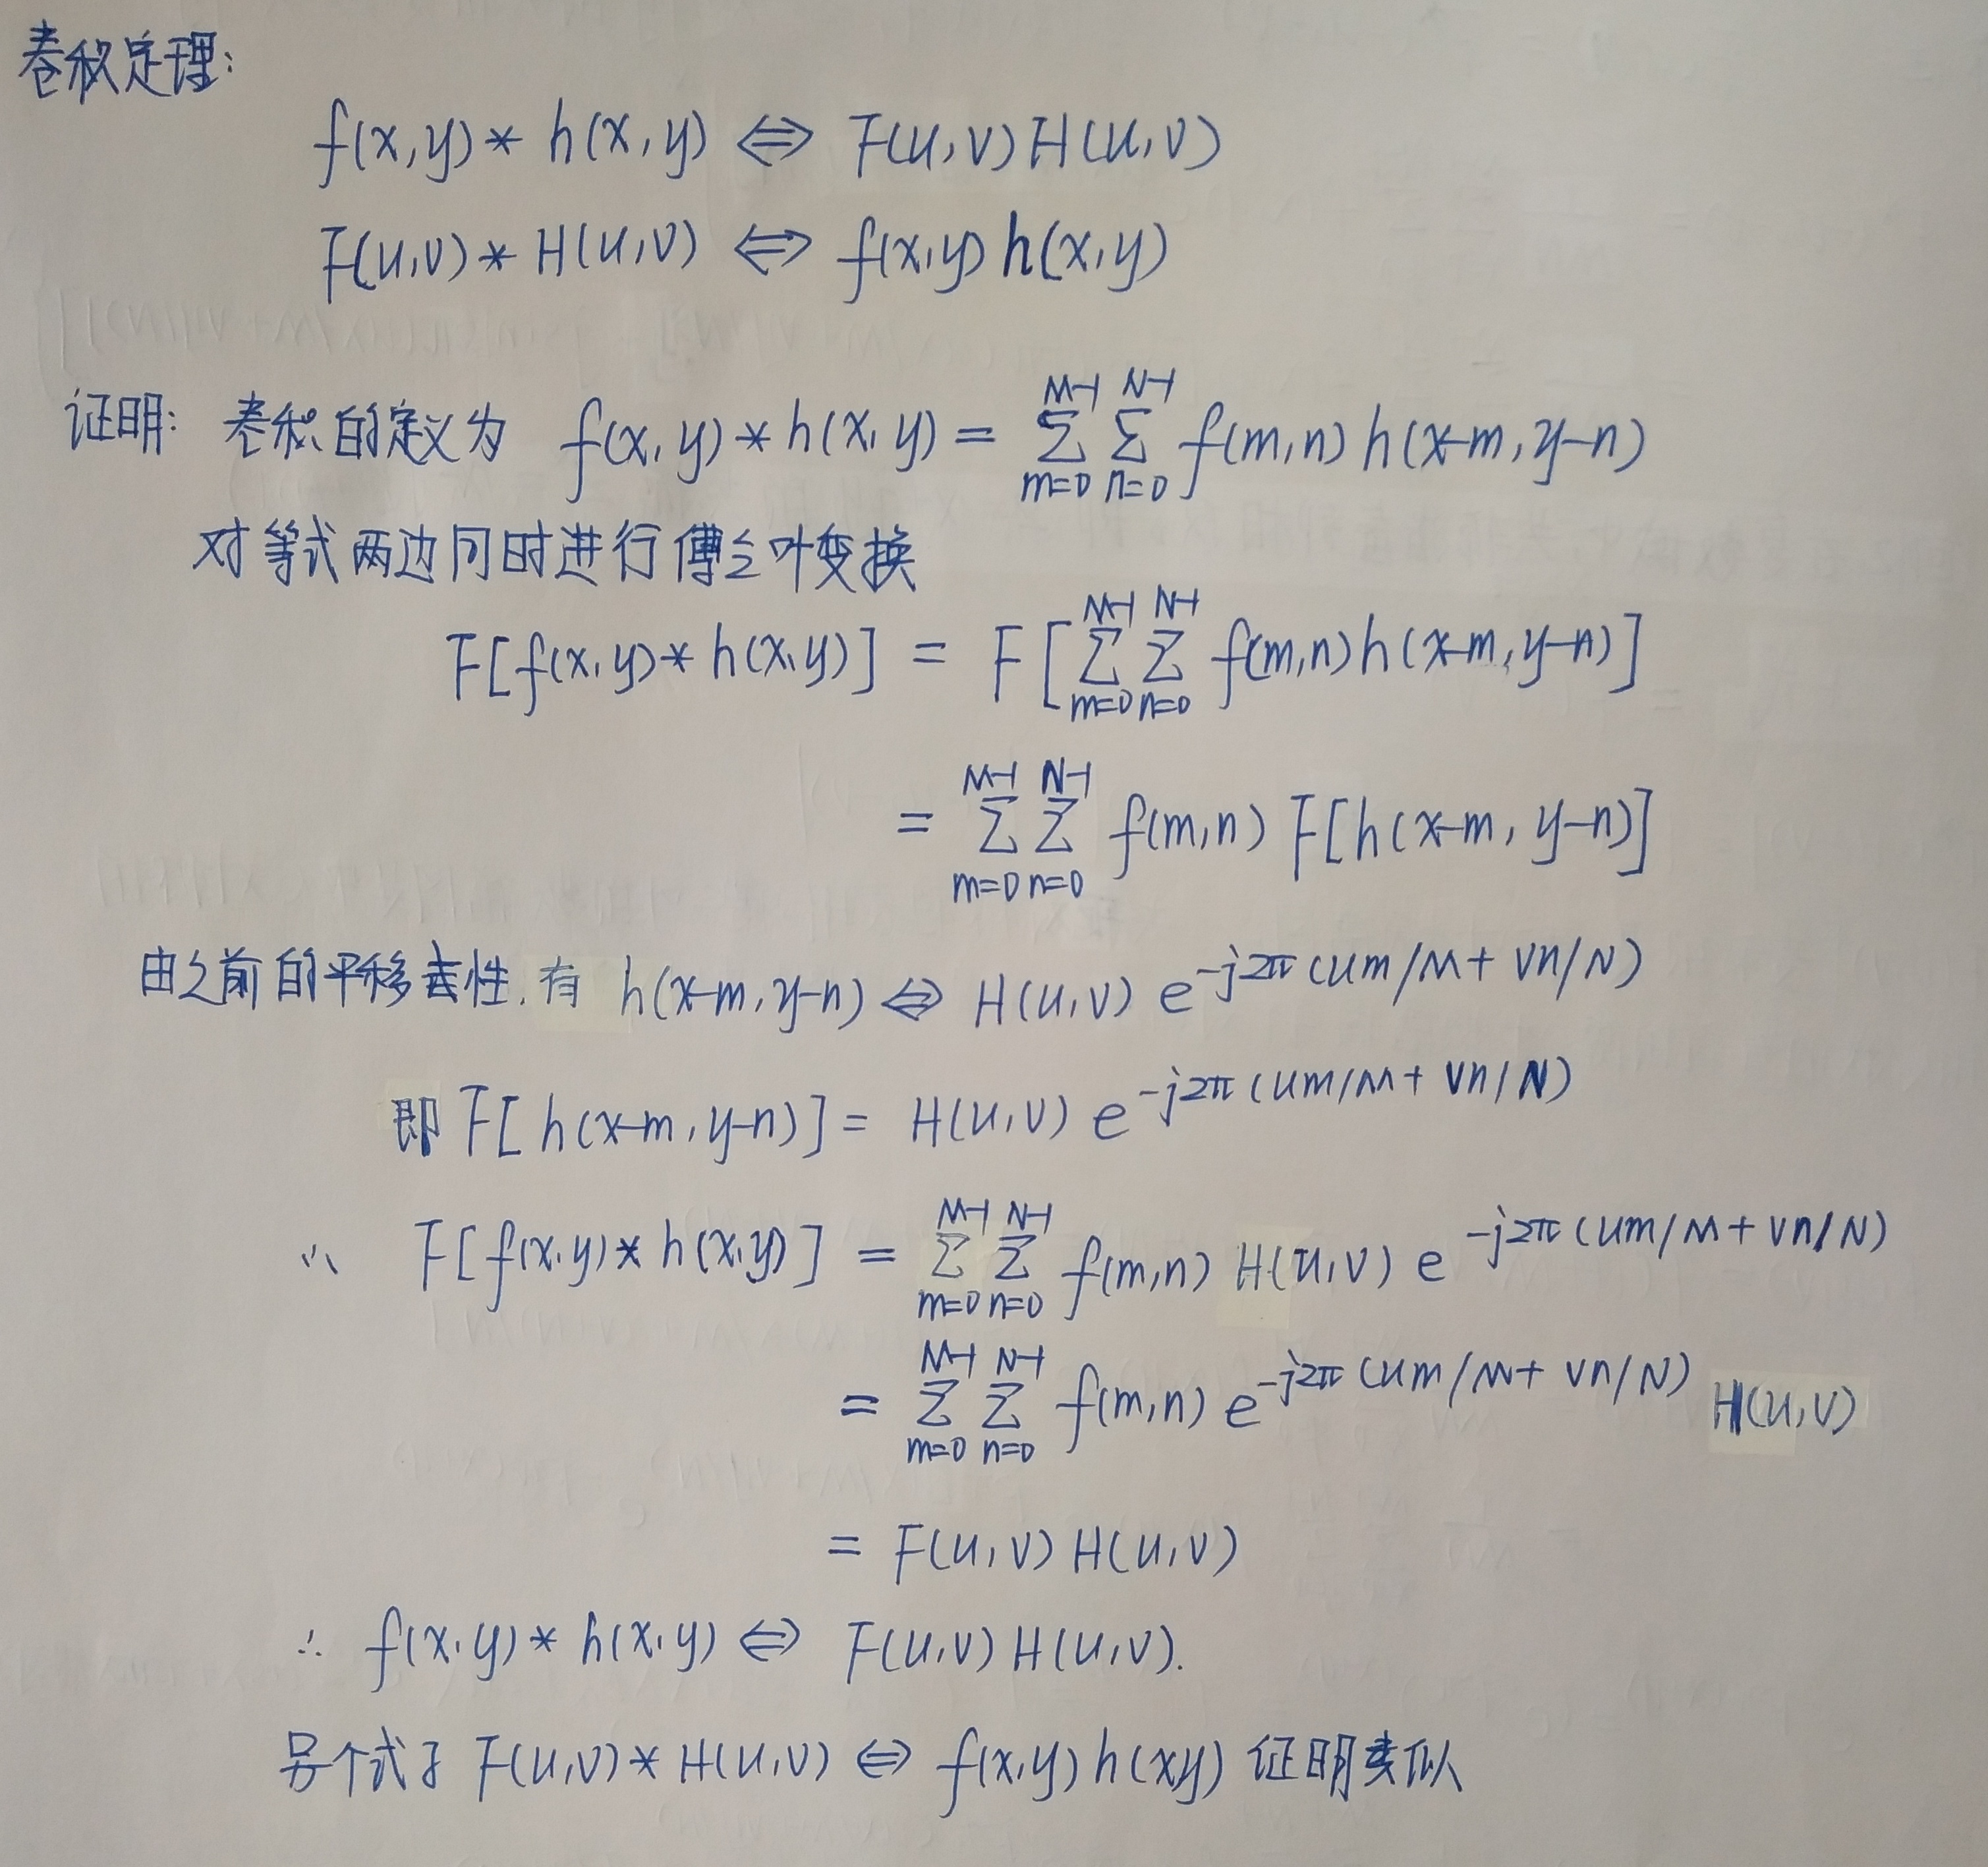 卷积定理:
f(x,y)* h(x,y) ⇔ F(u,v)H(u,v)
F(u,v)* H(u,v) ⇔ f(x,y)h(x,y)
证明: 卷积的定义为 f(x,y)*h(x,y) = ∑_{m=0}^{M-1} ∑_{n=0}^{N-1} f(m,n)h(x-m,y-n)
对等式两边同时进行傅立叶变换
F[f(x,y)*h(x,y)] = F[∑_{m=0}^{M-1} ∑_{n=0}^{N-1} f(m,n)h(x-m,y-n)]
= ∑_{m=0}^{M-1} ∑_{n=0}^{N-1} f(m,n) F[h(x-m,y-n)]
由之前的平移性,有 h(x-m,y-n) ⇔ H(u,v) e^{-j2π(um/M+vn/N)}
即 F[h(x-m,y-n)] = H(u,v) e^{-j2π(um/M+vn/N)}
∴ F[f(x,y)*h(x,y)] = ∑_{m=0}^{M-1} ∑_{n=0}^{N-1} f(m,n) H(u,v) e^{-j2π(um/M+vn/N)}
= ∑_{m=0}^{M-1} ∑_{n=0}^{N-1} f(m,n) e^{-j2π(um/M+vn/N)} H(u,v)
= F(u,v)H(u,v)
∴ f(x,y)*h(x,y) ⇔ F(u,v)H(u,v).
另个式子 F(u,v)*H(u,v) ⇔ f(x,y)h(xy) 证明类似